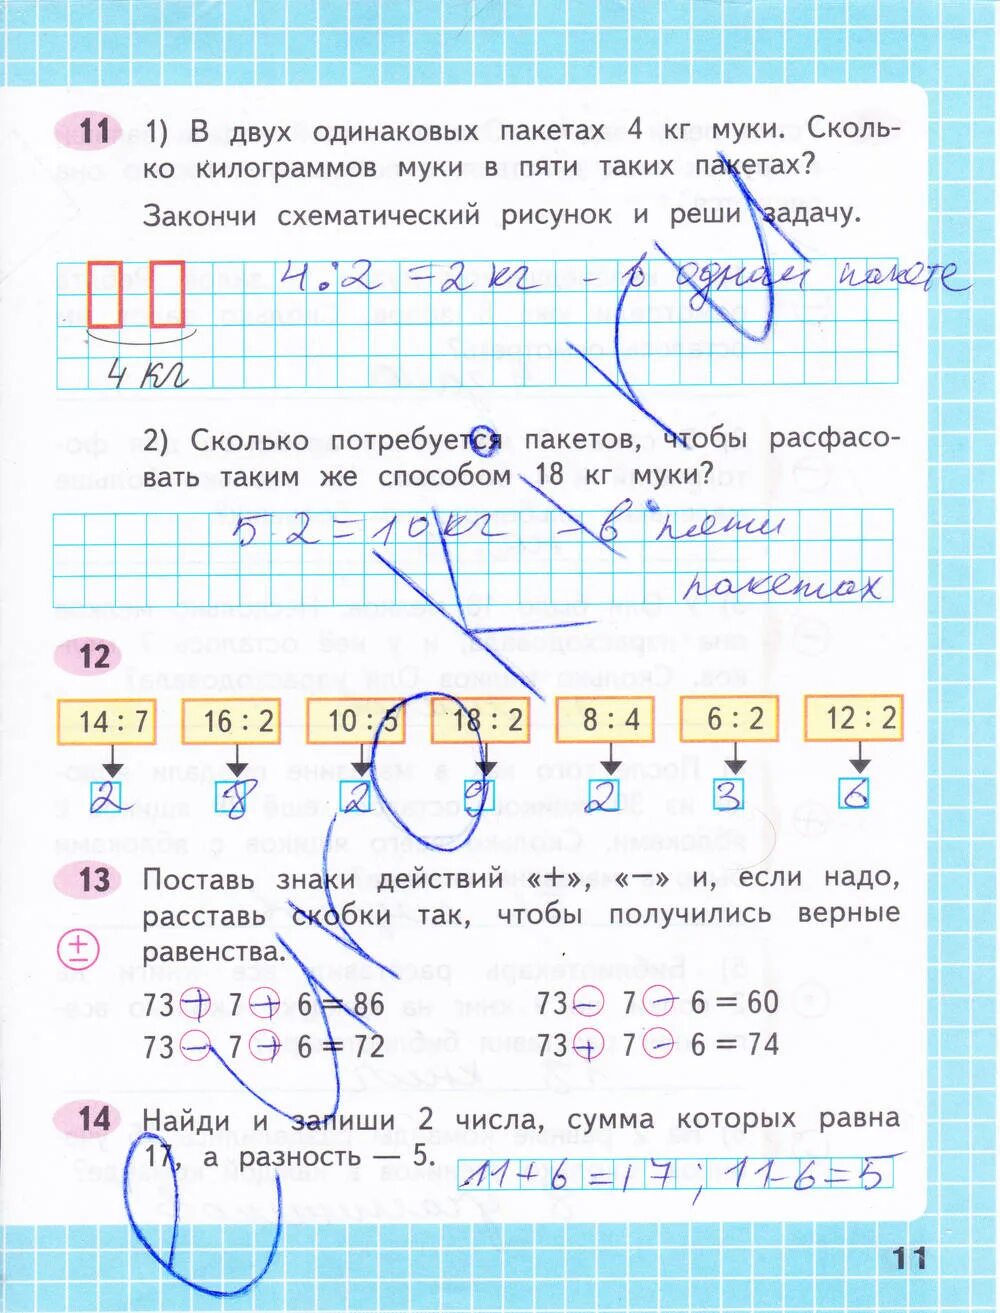 11 1) В двух одинаковых пакетах 4 кг муки. Сколь-
ко килограммов муки в пяти таких пакетах?
Закончи схематический рисунок и реши задачу.
4:2=2 кг – в одном пакете
4 кг
2) Сколько потребуется пакетов, чтобы расфасо-
вать таким же способом 18 кг муки?
5·2=10 кг – в пяти
пакетах
12
14 : 7 16 : 2 10 : 5 18 : 2 8 : 4 6 : 2 12 : 2
2 8 2 9 2 3 6
13 Поставь знаки действий «+», «−» и, если надо,
расставь скобки так, чтобы получились верные
равенства.
73 + 7 + 6 = 86 73 − 7 − 6 = 60
73 − 7 + 6 = 72 73 + 7 − 6 = 74
14 Найди и запиши 2 числа, сумма которых равна
17, а разность — 5. 11+6=17, 11-6=5
11